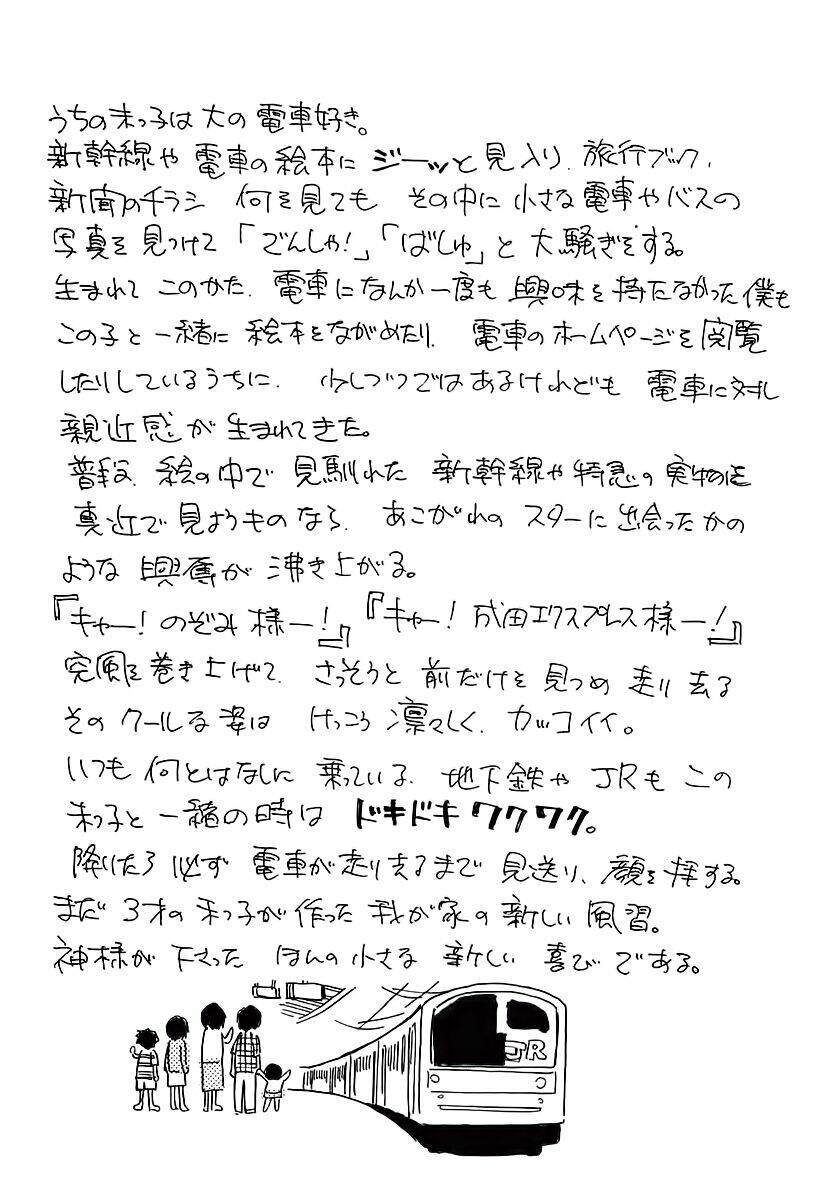 うちの末っ子は大の電車好き。
新幹線や電車の絵本にジーッと見入り、旅行ブック、
新聞のチラシ 何を見ても その中に小さな電車やバスの
写真を見つけて「でんしゃ!」「ばしゅ」と大騒ぎをする。
生まれてこのかた、電車になんか一度も興味を持たなかった僕も
この子と一緒に絵本をながめたり、電車のホームページを閲覧
したりしているうちに、少しづつではあるけれども 電車に対し
親近感が生まれてきた。
普段、絵の中で見馴れた 新幹線や特急の実物を
真近で見ようものなら、あこがれのスターに出会ったかの
ような興奮が沸き上がる。
『キャー!のぞみ様ー!』『キャー!成田エクスプレス様ー!』
突風を巻き上げて、さっそうと前だけを見つめ走り去る
そのクールな姿は けっこう凛々しく、カッコイイ。
いつも何とはなしに乗っている、地下鉄やJRもこの
末っ子と一緒の時はドキドキワクワク。
降りたら必ず電車が走り去るまで見送り、
まだ3才の末っ子が作った我が家の新しい風習。
神様が下さった ほんの小さな 新しい 喜びである。
JR